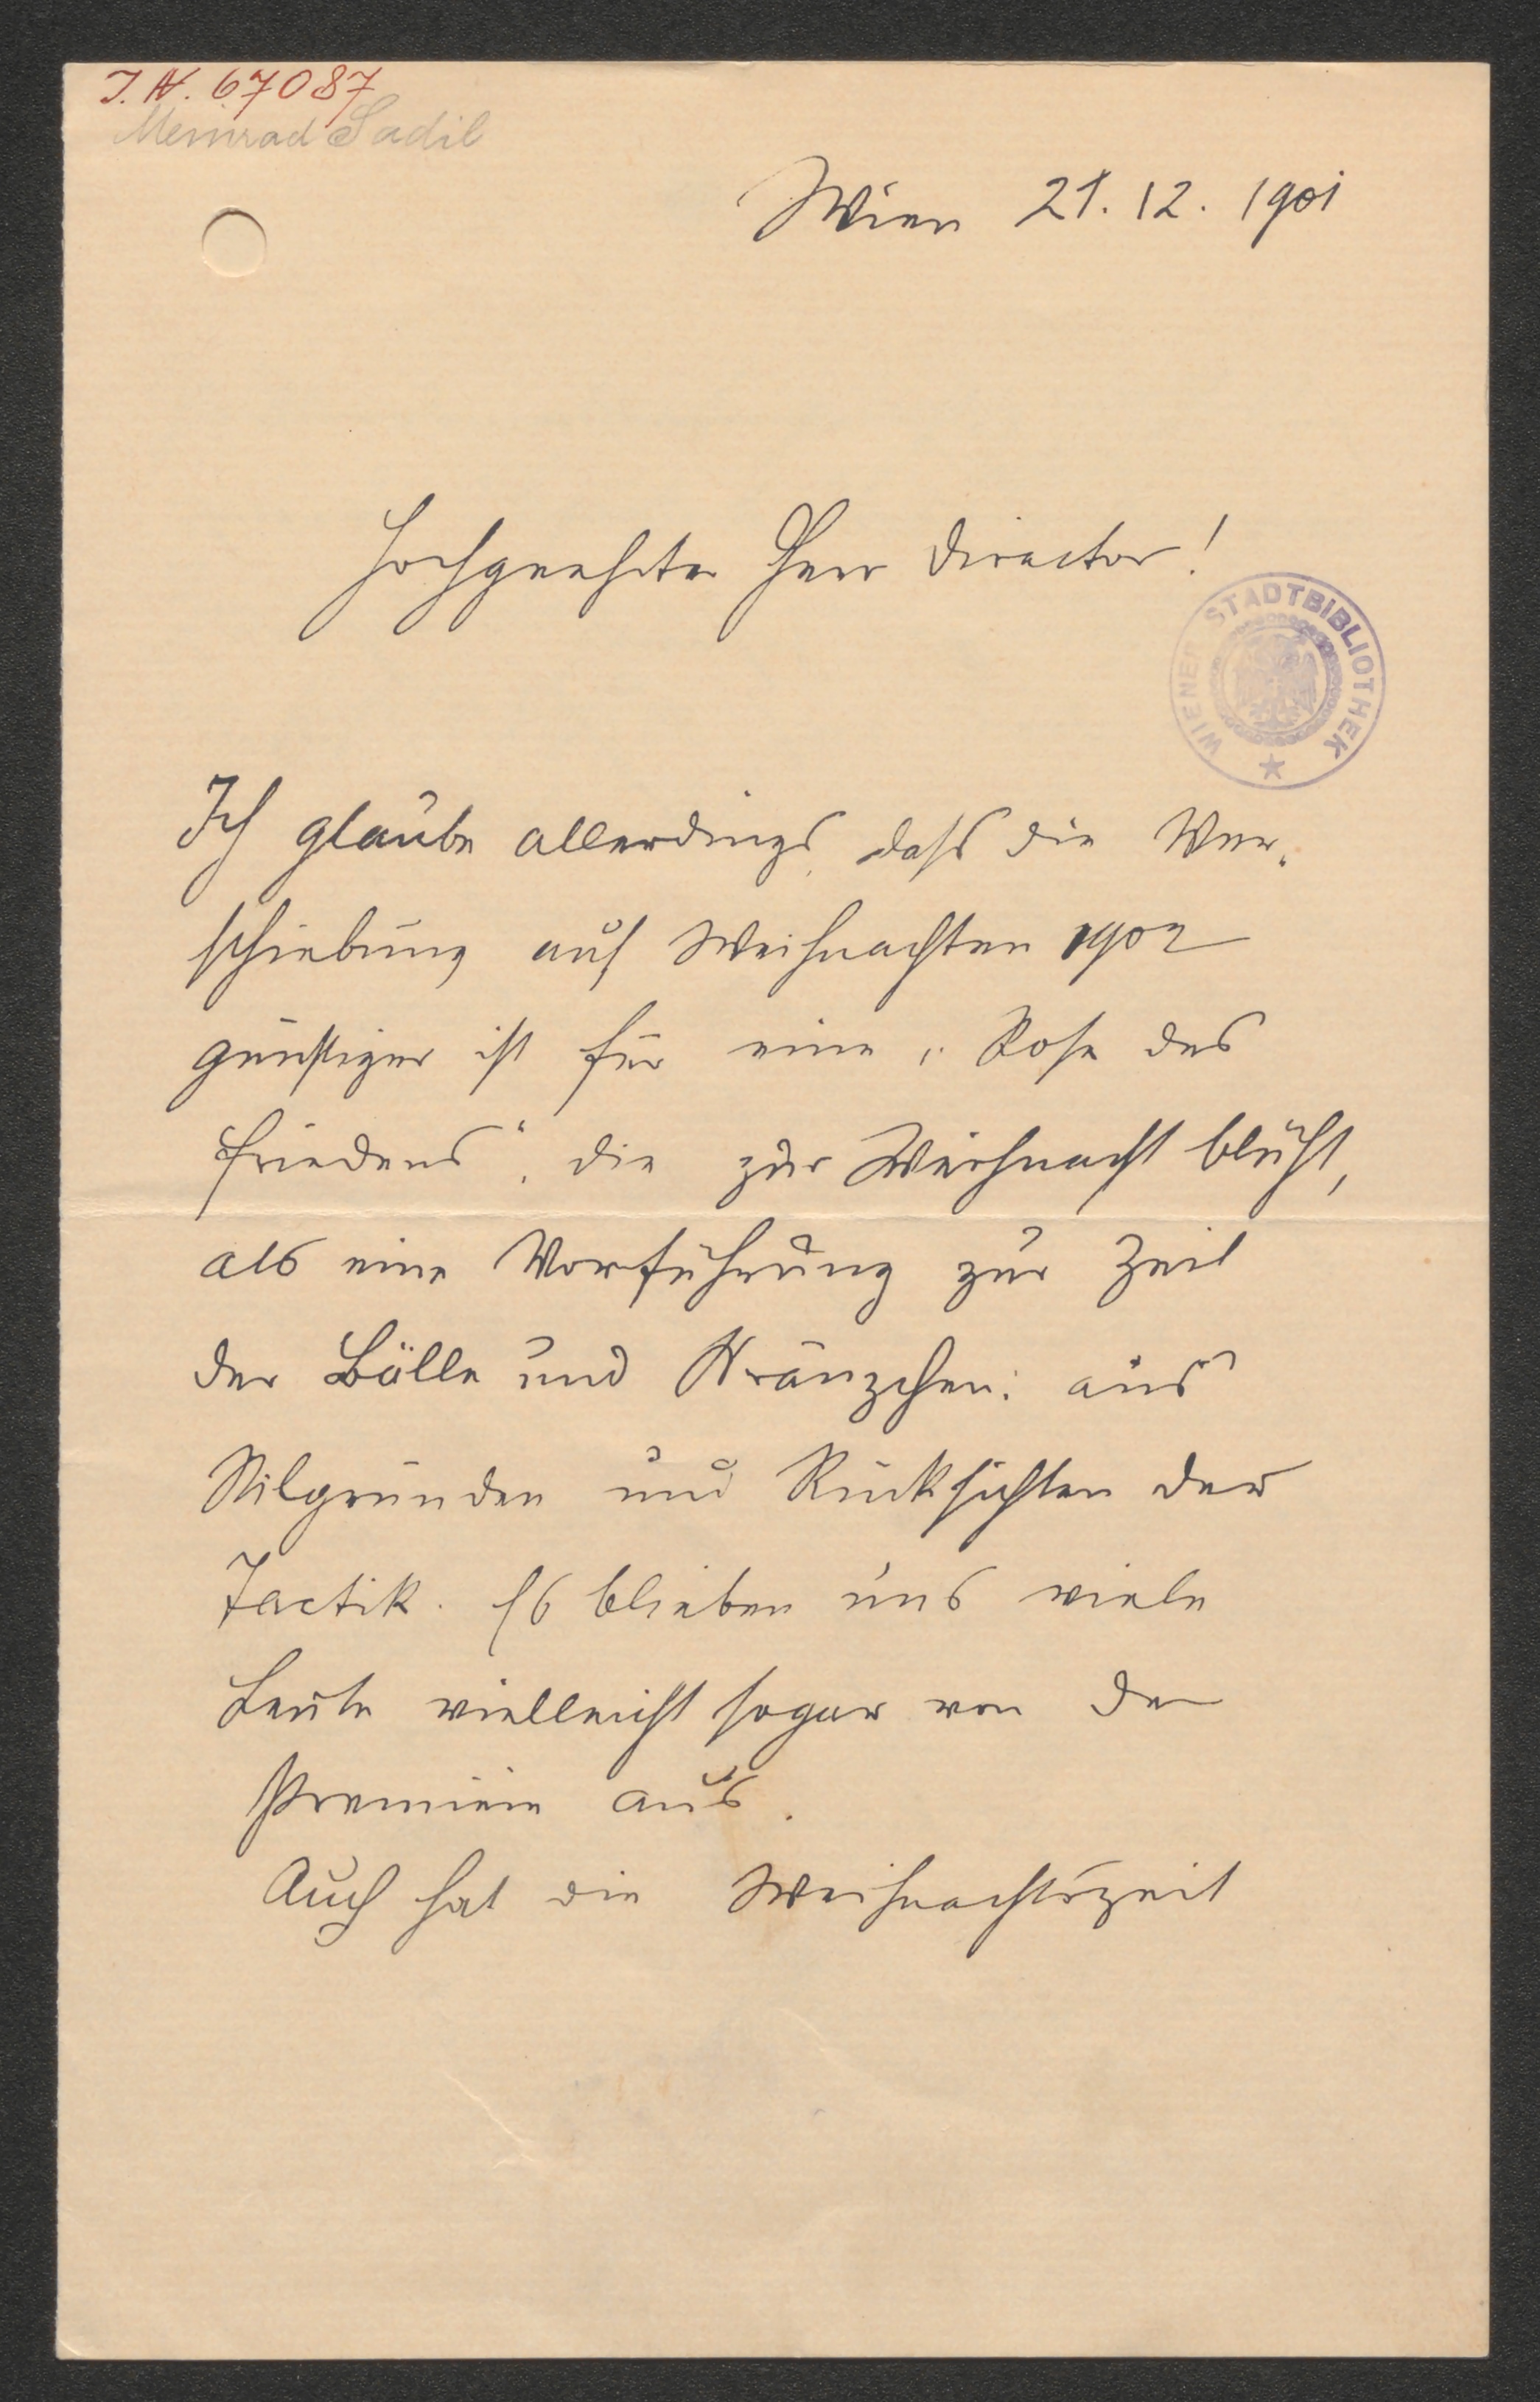 I. N. 67087
Meinrad Sadil
Wien 21. 12. 1901
Hochgeehrter Herr Director!
WIENER STADTBIBLIOTHEK
Ich glaube allerdings, dass die Ver-
schiebung auf Weihnachten 1902
günstiger ist für eine „Rose des
Friedens", die zur Weihnacht blüht,
als eine Vorführung zur Zeit
der Bälle und Kränzchen: aus
Stilgründen und Rücksichten der
Tactik. Es blieben uns viele
Leute vielleicht sogar von der
Premiere aus.
Auch hat die Weihnachtszeit